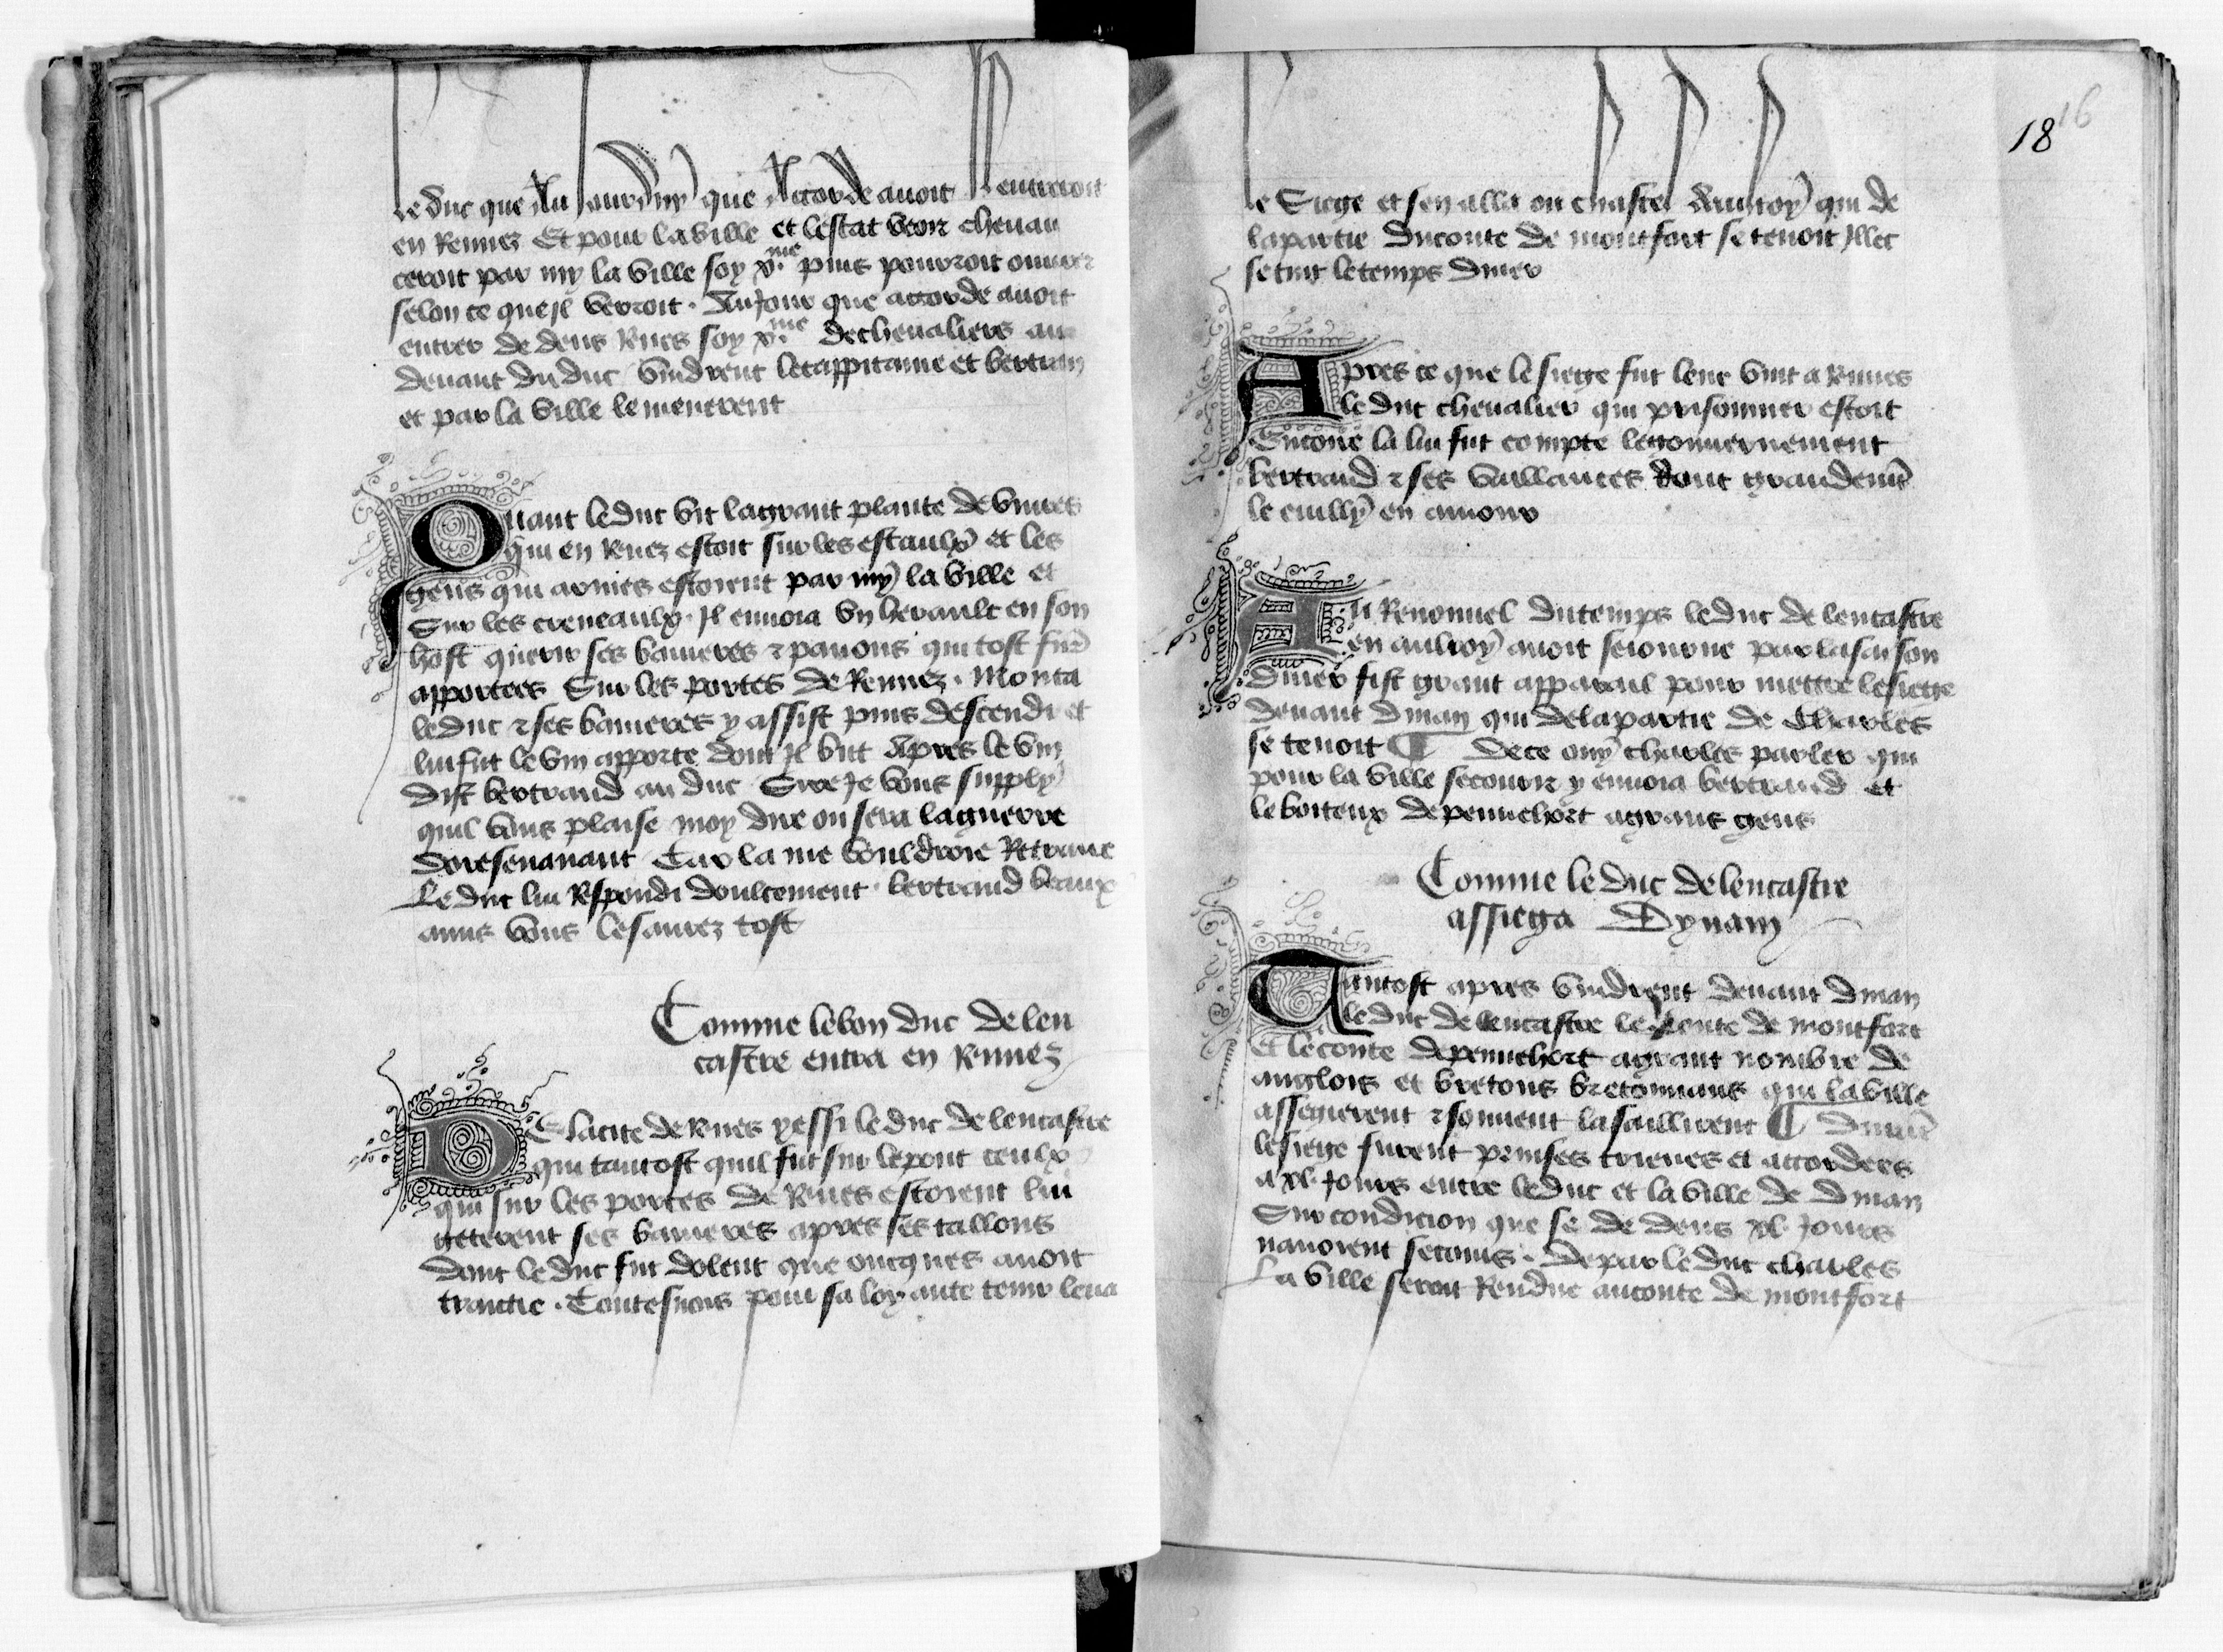 le duc que Au Jourduy que Acorde avoit Il entreroit
en Rennez Et pour la ville et lestat veor chevau
ceroit par my la ville soy x.me puis pourroit ouvrer
selon ce que Jl verroit . Au Jour que accorde avoit
entrer de dens Rnes soy x.me de chevaliers au
devant du duc vindrent le cappitaine et bertran
et par la ville le menerent
Quant le duc vit la grant plante de vivres
qui en Rnez estoit sur les estaulx et les
gens qui armes estoient par my la ville et
Sur les creneaulx . Jl envoia vn herault en son
host querir ses banieres & panons qui tost fure
apportees Sur les portes de Rennez . Monta
le duc & ses banieres y assist puis descendi et
lui fut le vin apporte dont Jl but Apres le vin
dist bertrand au duc Sire Je vous supply
quil vous plaise moy dire ou sera la guerre
doresenavant Car la me vouldroie Retraire
Le duc lui Respondi doulcement . bertrand beaux
amis vous le saurez tost
Comme le bon duc de len
castre entra en Rennez
De la cite de Rnes yessi le duc de lencastre
qui tantost quil fut sur le pont ceulx
qui sur les portes de Rnes estoient lui
getterent ses banieres apres ses tallons
dont le duc fut dolent que oncques avoit
traictie . Toutesvois pour sa loyaute tenir leva
18 16
le Siege et sen alla ou chastel daulroy qui de
la partie du conte de montfort se tenoit Jllec
se tint le temps diver
Apres ce que le siege fut leve vint a Rnnes
le duc chevalier qui prisonnier estoit
Encore la lui fut compte le gouvernement
bertrand & ses vaillances dont grandemt
le cuilly en amour
Au Renouvel du temps le duc de lencastre
en aulroy avoit seiourne par la saison
diver fist grant appareil pour mettre le siege
devant dinan qui de la partie de Charles
se tenoit ¶ De ce ouy charles parler qui
pour la ville secourir y envoia bertrand et
le boiteux de penuehort a grans gens
Comme le duc de lencastre
assiega Dynam
Tantost apres vindrent devant dinan
le duc de lencastre le conte de montfort
et le conte de penuehort a grant nombre de
anglois et bretons bretonnans qui la ville
assegierent & souvent lassaillirent ¶ Durant
le siege furent prinses trieves et accordees
a xl . Jours entre le duc et la ville de dinan
Sur condicion que se de dens xl . Jours
navoient secours . De par le duc charles
La ville seroit Rendue au conte de montfort